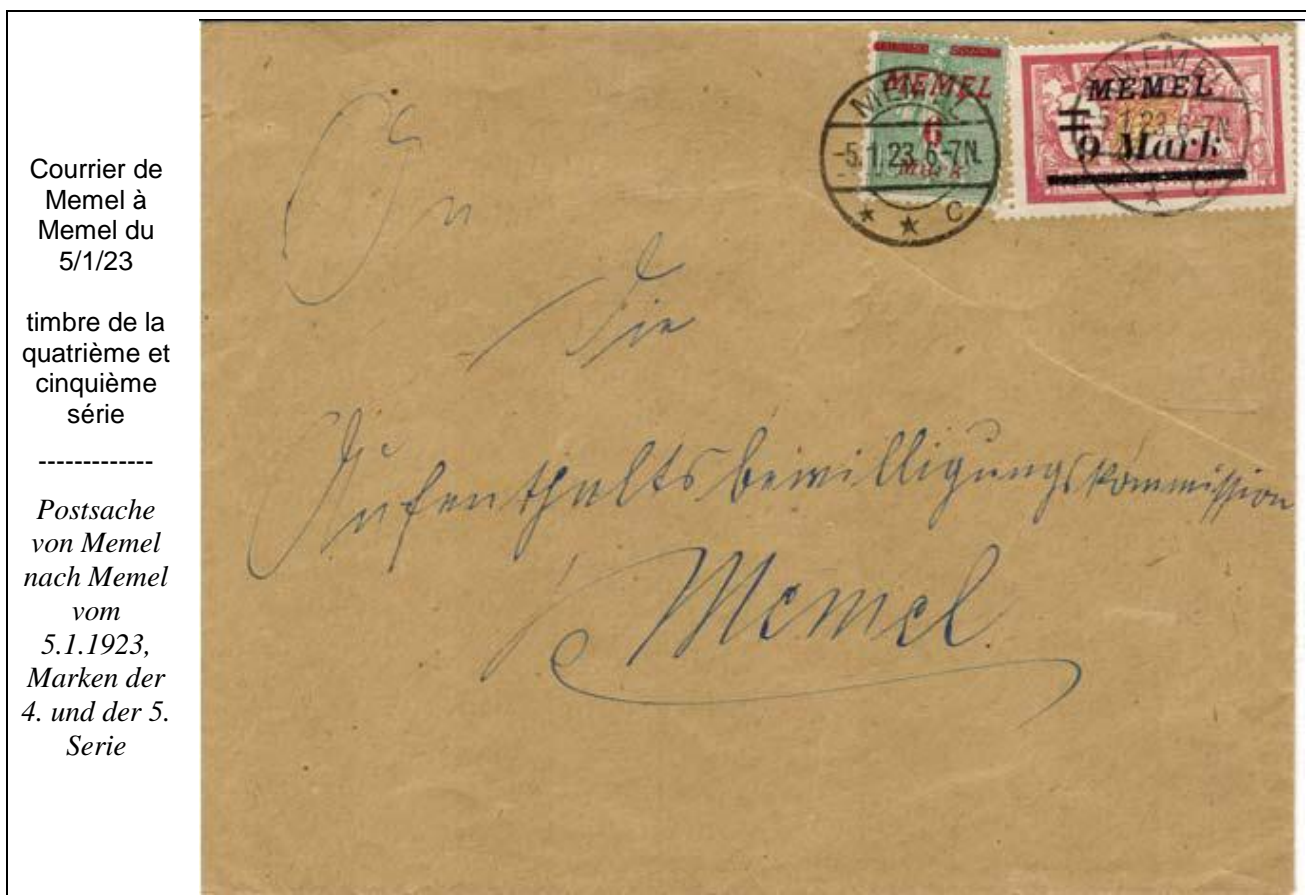 Courrier de
Memel à
Memel du
5/1/23
timbre de la
quatrième et
cinquième
série
-------------
Postsache
von Memel
nach Memel
vom
5.1.1923,
Marken der
4. und der 5.
Serie
MEMEL
6
Mark
MEMEL
-5.1.23.6-7N.
* * C
MEMEL
9 Mark
MEMEL
-5.1.23.6-7N.
* C
An
die
Aufenthaltsbewilligungskommission
Memel.